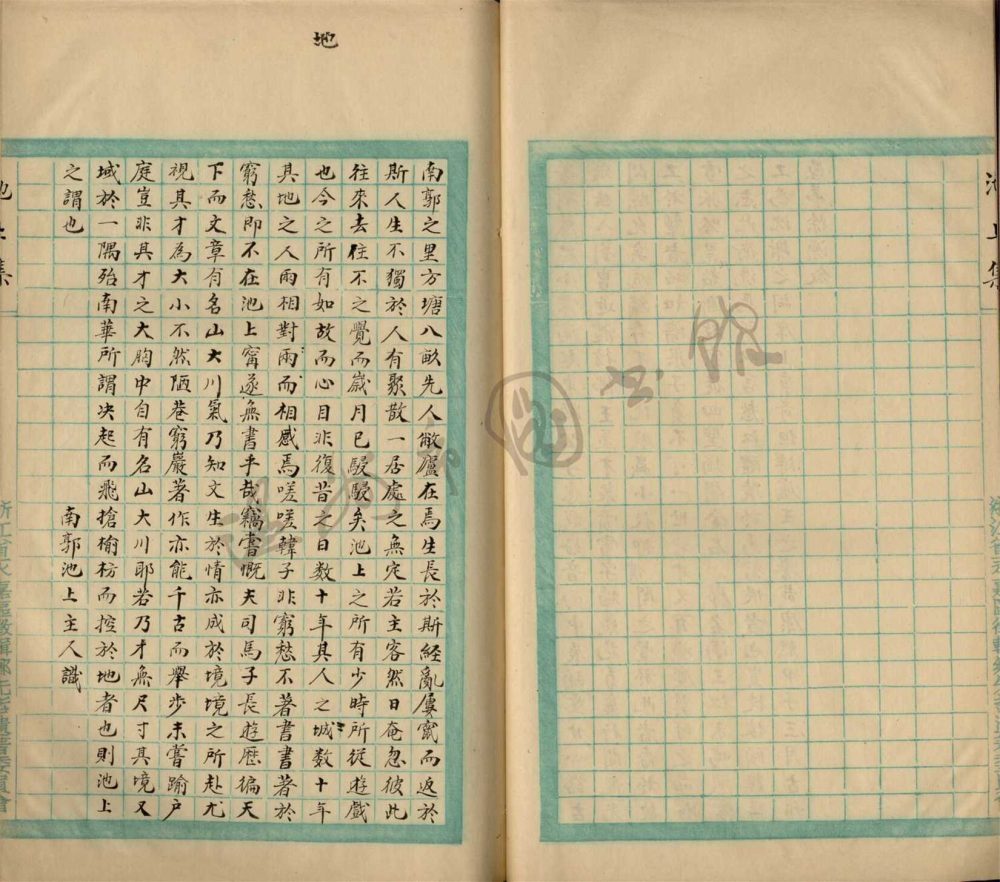 池上集
一
地
南郭之里方塘八畝先人敝廬在焉生長於斯經亂屢竄而返於
斯人生不獨於人有聚散一居處之無定若主客然日奄忽彼此
往來去住不之覺而歲月已駸駸矣池上之所有少時所從遊戲
也今之所有如故而心目非復昔之日數十年其人之城數十年
其地之人兩相對兩而相感焉嗟嗟韓子非窮愁不著書書著於
窮愁即不在池上甯遂無書乎哉竊嘗慨夫司馬子長遊歷徧天
下而文章有名山大川氣乃知文生於情亦成於境境之所赴尤
視其才為大小不然陋巷窮巖著作亦能千古而舉步未嘗踰戶
庭豈非其才之大胸中自有名山大川耶若乃才無尺寸其境又
域於一隅殆南華所謂决起而飛搶榆枋而控於地者也則池上
之謂也
南郭池上主人識
池上集
一
浙江省永嘉區徵輯鄉先哲遺著委員會